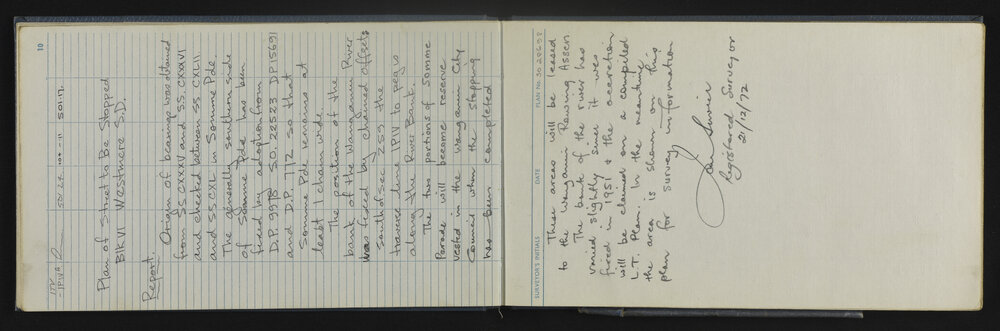 10
ITV
- IPIVA
50 24
100 - 11
501.17.
Plan of Street to Be Stopped
Blk VI Westmere S.D.
Report.
Origin of bearings was obtained
from SS CXXXV and SS. CXXXVI
and checked between SS CXLII
and SS CXL in Somme Pde.
The generally southern side
of Somme Pde has been
fixed by adoption from
D.P. 9978 S.O. 22523 DP 15691
and D.P. 772 so that
Somme Pde remains at
least 1 chain wide
The position of the
bank of the Wanganui River
was fixed by chained offsets
south of sec 259 the
traverse line IPIV to peg vs
along the River Bank.
The two portions of Somme
Parade will become reserve
vested in the Wanganui City
Council when the stopping
has been completed
SURVEYOR'S INITIALS
DATE
PLAN No. SO 28698
These areas will be leased
to the Wanganui Rowing Assn
The bank of the river has
varied slightly since it was
fixed in 1951 & the accretion
will be claimed on a compiled
L.T. Plan. In the meantime
the area is shown on this
plan for survey information
Registered Surveyor
21/12/72